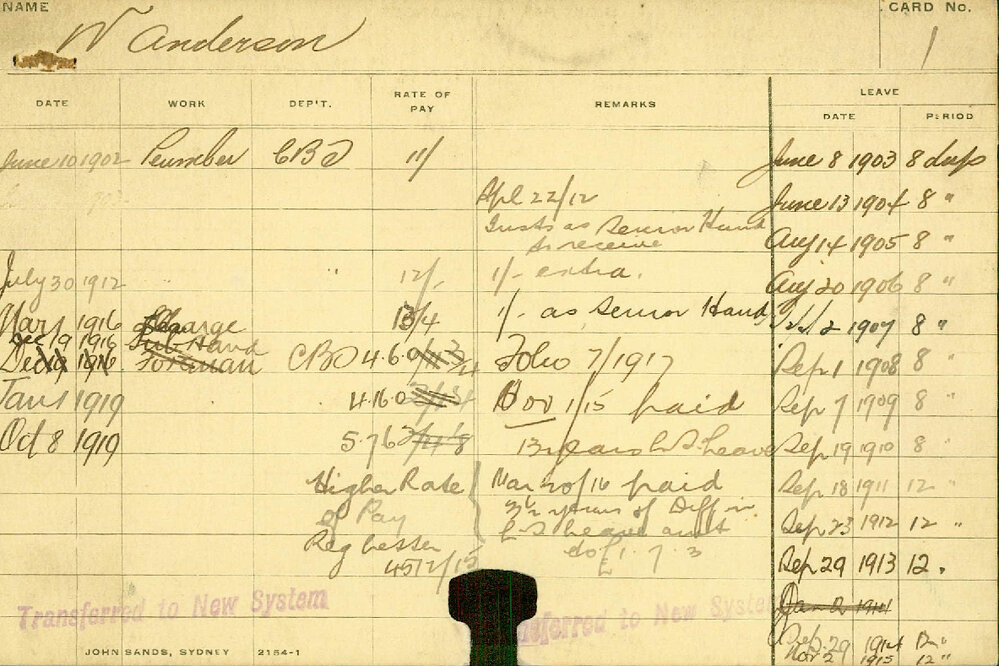 NAME
W Anderson
CARD No.
1
DATE WORK DEP'T. RATE OF PAY REMARKS LEAVE
DATE PERIOD
June 10 1902 Plumber CBD 11/ June 8 1903 8 days
Apl 22/12 June 13 1904 8 "
as Senior Hand
to receive Aug 14 1905 8 "
July 30 1912 " 12/- 1/- extra. Aug 20 1906 8 "
Mar 1 1916 Charge 13/4 1/- as Senior Hand 2 1907 8 "
Dec 19 1916 Sub-Hand
Dec 19 1916 Foreman CBD 4.6.0 Folio 7/1917 Sep 1 1908 8 "
Jan 1 1919 4.16.0 Nov 1/15 paid Sep 7 1909 8 "
Oct 8 1919 5.7.6 13 years L S Leave Sep 19 1910 8 "
Higher Rate Mar 20/16 paid Sep 18 1911 12 "
of Pay 3½ years of Diff in Sep 23 1912 12 "
L S Leave amt
Reg letter do £1.7.3 Sep 29 1913 12 "
4512/15
Transferred to New System Transferred to New System Jan 2 1914
Sep 29 1914 12 "
Nov 2 1915 12 "
JOHN SANDS, SYDNEY 2154-1